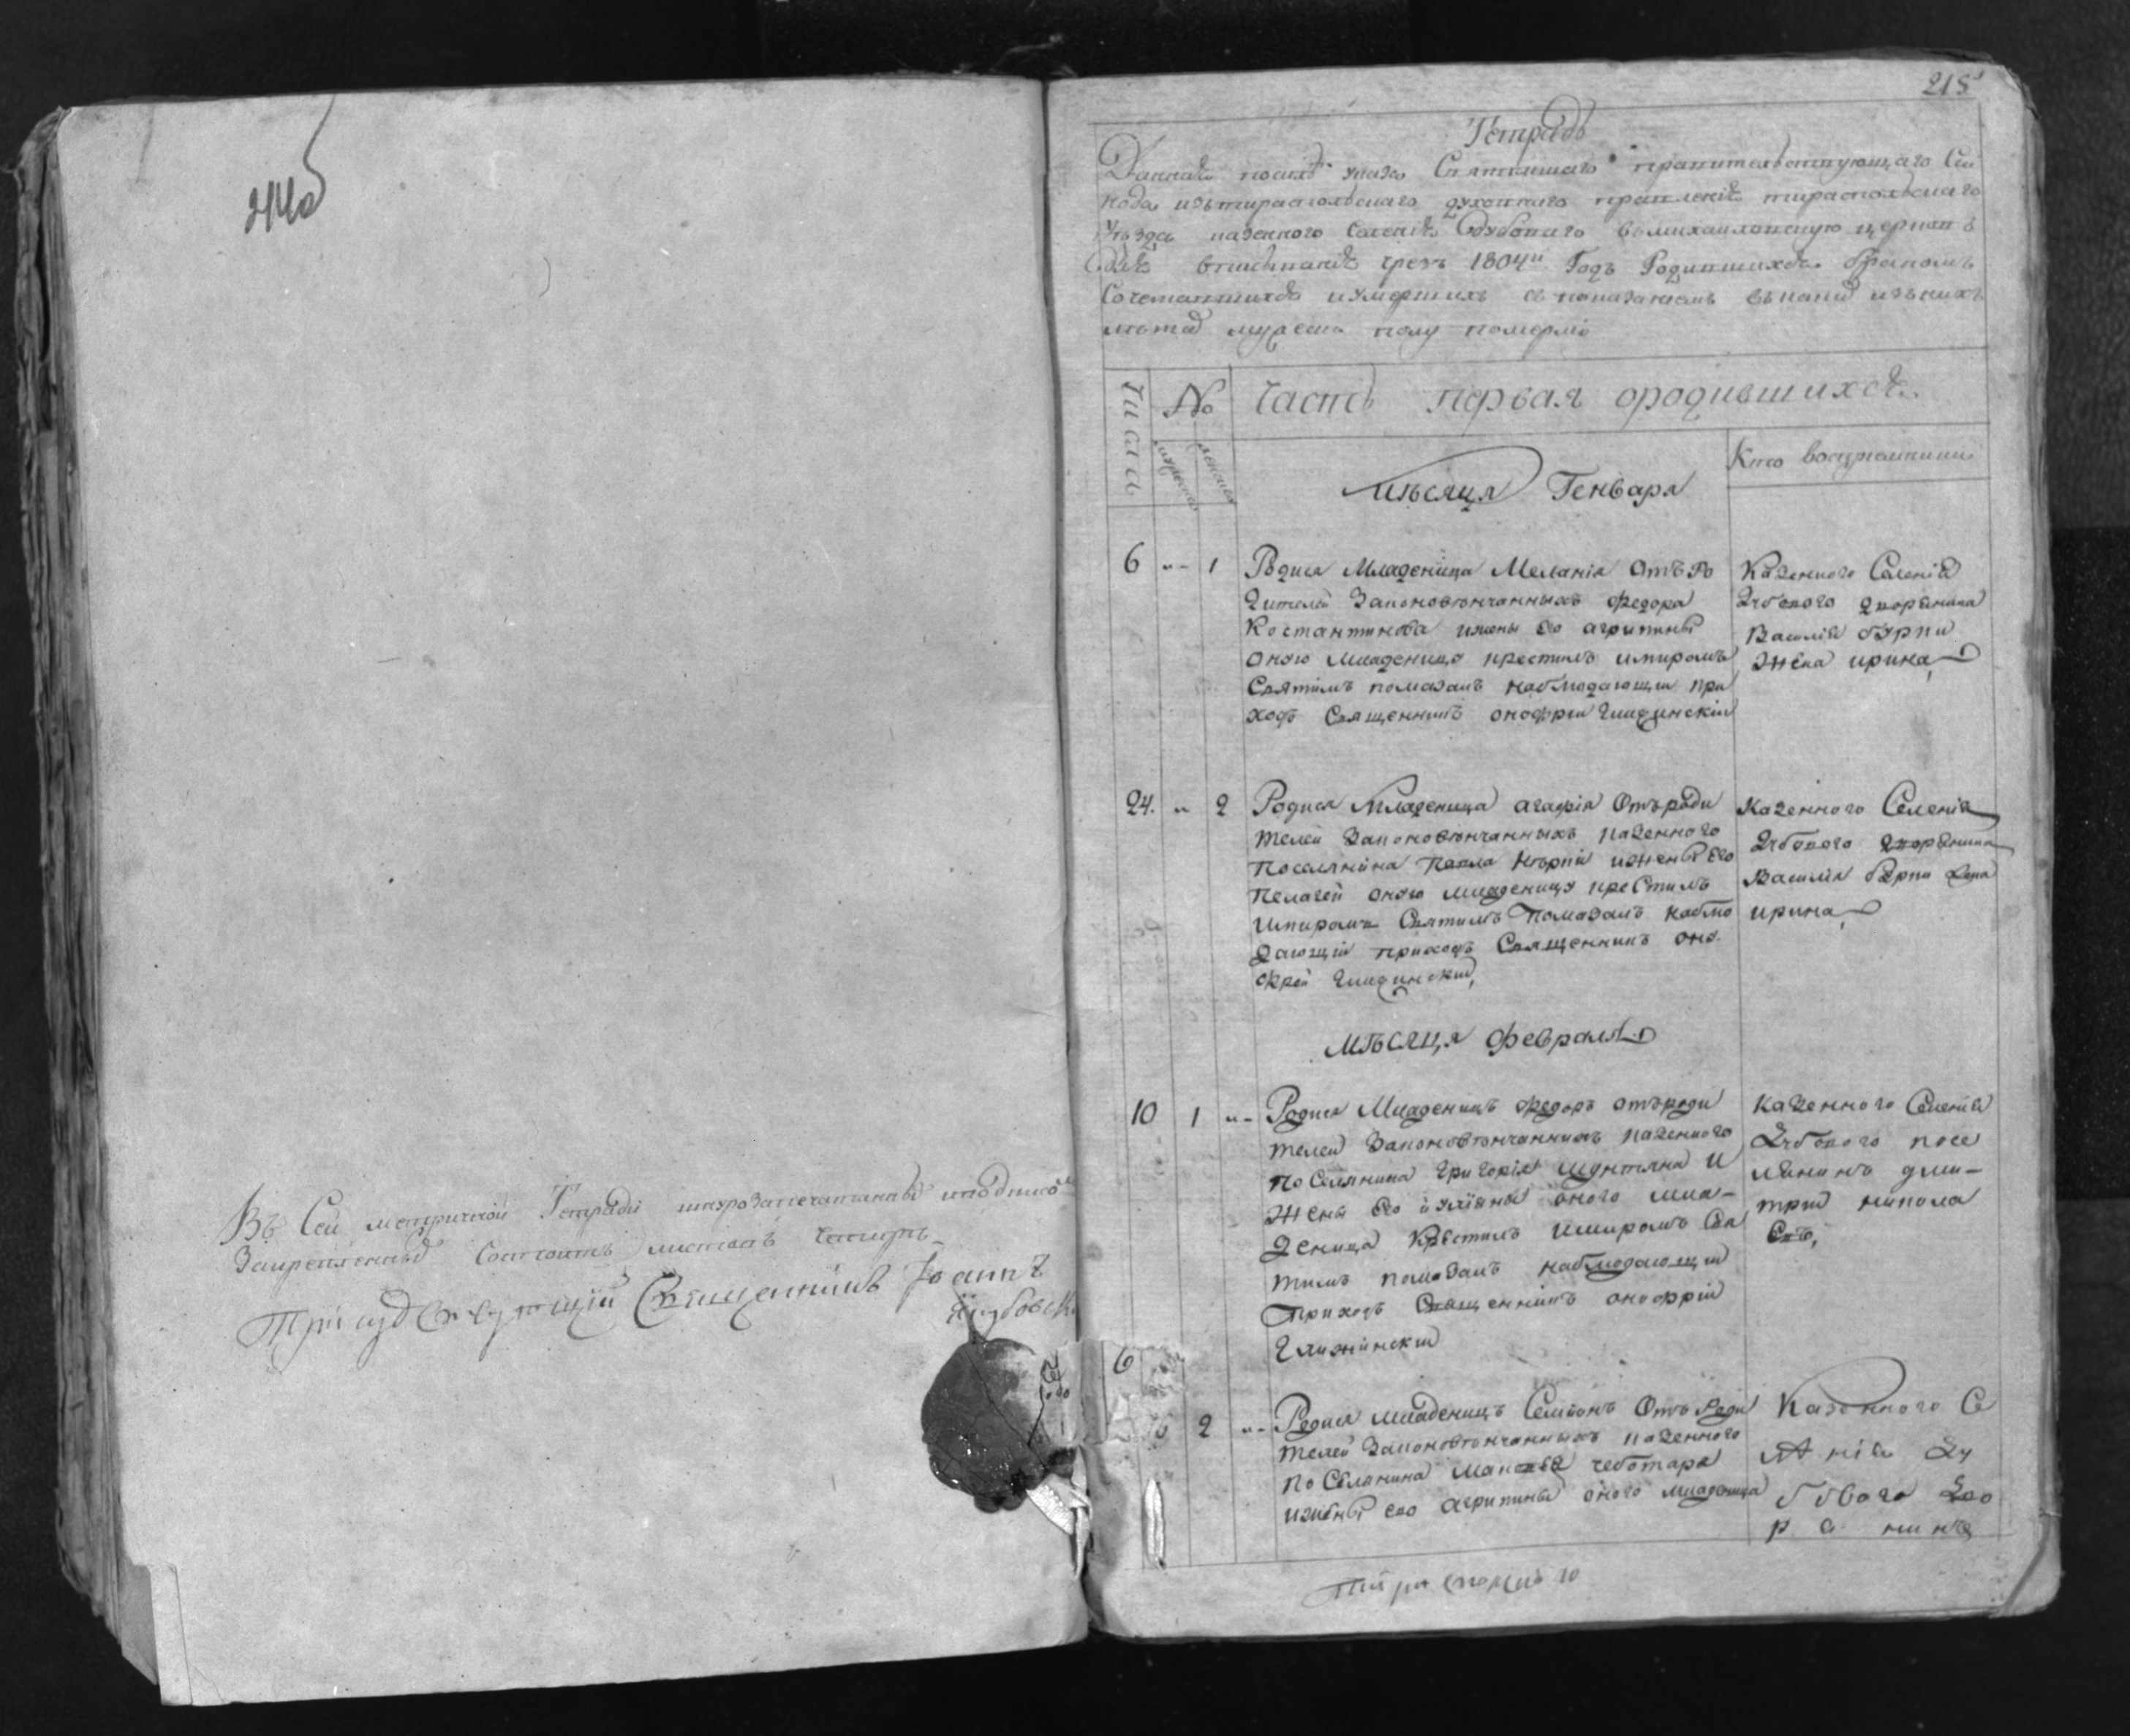 Въ Сей метричной Тетради шнурозапечатанной
Закрепленной Состоитъ листовъ четыре
Присудствующїй Священникъ Іоаннъ
215
Тетрадь
Данная по силѣ указа Святѣйшаго правительствующаго Си
нода изъ тираспольскаго духовнаго правленія тираспольскаго
Уѣзда казенного Селенія Дубоваго въ михаиловскую церковь
Для вписыванія чрезъ 1804й Годъ Родившихся бракомъ
Сочетавшихся и умершихъ съ показаніемъ
полу
Числа
№
Часть первая ородившихся
мужеска
женска
Кто воспрiемники
мѣсяца Генваря
6 „ 1 Родися Младеница Меланія Отъ Ро
дителей Законовѣнчанныхъ Федора
Костантинова ижены Его агрипины
оную Младеницу крестилъ имиромъ
Святимъ помазалъ наблюдающии при
ходъ Священникъ онофрии Глиджинскiи
Казенного Селенія
Дубового дворянина
Василія бурки
Жена ирина
24. „ 2 Родися Младеница агафія Отъ роди
телей Законовѣнчанныхъ казенного
Поселянина Павла Кѣркiи ижены Его
Пелагеи оную младеницу крестилъ
имиромъ Святимъ Помазалъ наблю
дающiй приходъ Священникъ оно
фрiй Глиджинскiи
Казенного Селенія
Дубового дворянина
Василія бурки Жена
ирина
Мѣсяця февраля
10 1 „ Родися Младеницъ Федоръ отъ роди
телей Законовѣнчаннихъ казенного
Поселянина Григорія Шунтяна И
Жены Его иулїяны оного мла-
деница Крестилъ имиромъ Свя
тимъ помазалъ наблюдающiи
Приходъ Священникъ онофрiй
Глижинскiи
Казенного Селенія
Дубового посе
лянинъ дми-
трий никола
Евъ
6
2 „ Родися младеницъ Семионъ Отъ Роди
телей Законовѣнчанныхъ казенного
Поселянина чеботаря
иженѣ его агрипины оного младеница
Казенного Се
ленія Ду
бового дво
рянина